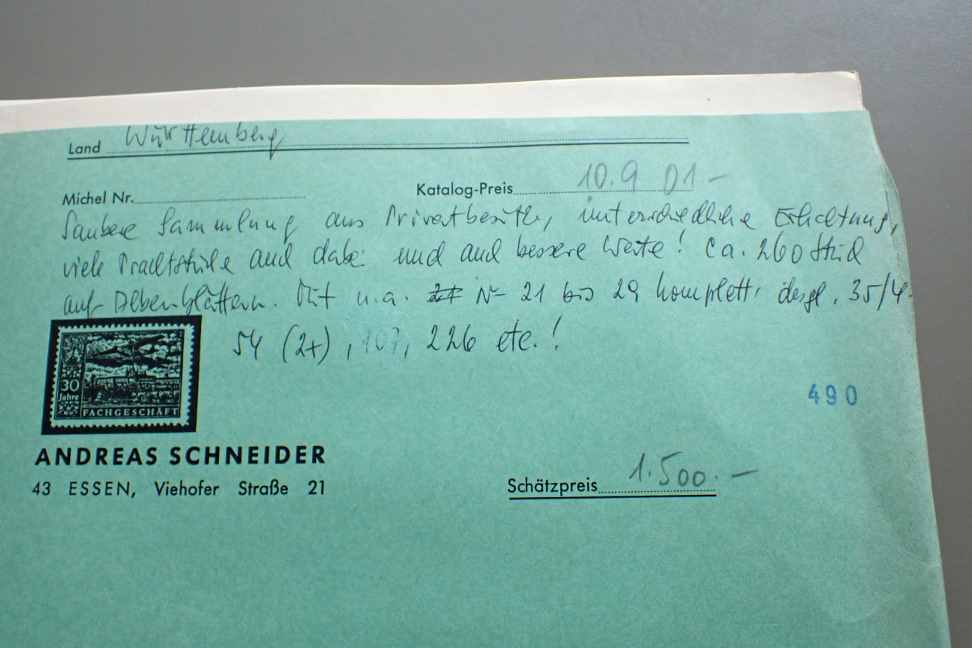 Land Württemberg
Michel Nr. Katalog-Preis 10.901-
Saubere Sammlung aus Privatbesitz, unterschiedliche Erhaltung,
viele Prachtstücke und dabei und auch bessere Werte! ca. 260 Stück
auf Albenblättern. Mit u.a. Nr 21 bis 29 komplett, desgl. 35/4
54 (2x), 107, 226 etc.!
30
Jahre
FACHGESCHÄFT
490
ANDREAS SCHNEIDER
43 ESSEN, Viehofer Straße 21
Schätzpreis 1.500.-